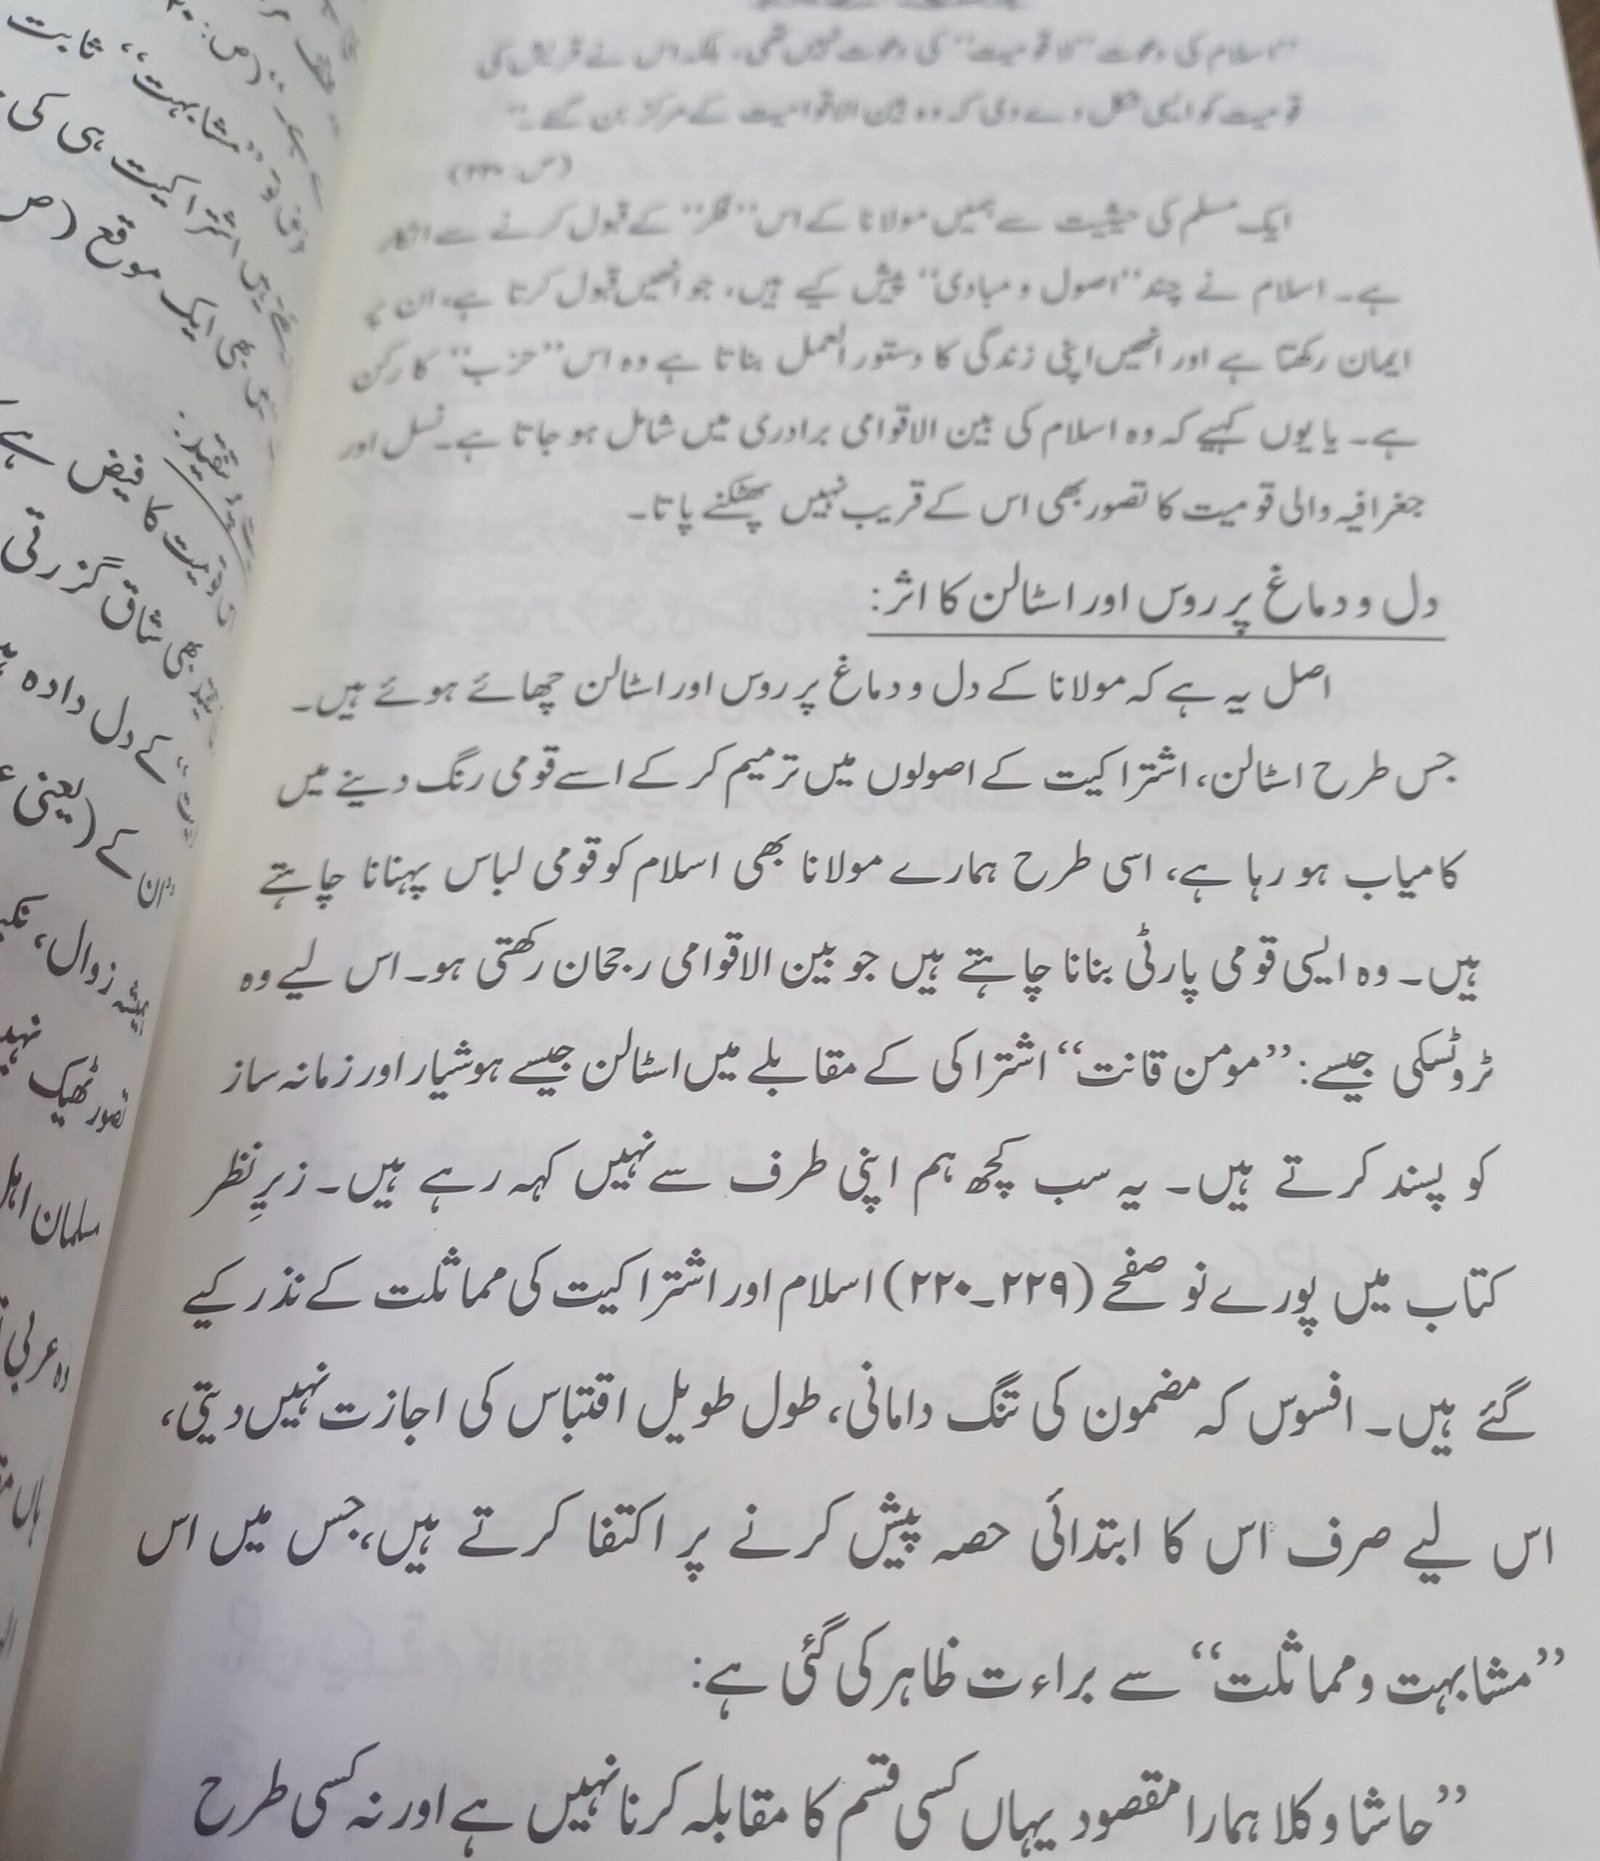 "اسلام کی دعوت "لا قومیت" کی دعوت نہیں تھی، بلکہ اس نے قریش کی
قومیت کو ایسی شکل دے دی کہ وہ بین الاقوامیت کے مرکز بن گئے۔"
ایک مسلم کی حیثیت سے ہمیں مولانا کے اس "فکر" کے قبول کرنے سے انکار
ہے۔ اسلام نے چند "اصول و مبادی" پیش کیے ہیں، جو انھیں قبول کرتا ہے، ان پر
ایمان رکھتا ہے اور انھیں اپنی زندگی کا دستور العمل بناتا ہے وہ اس "حزب" کا رکن
ہے۔ یا یوں کہیے کہ وہ اسلام کی بین الاقوامی برادری میں شامل ہو جاتا ہے۔ نسل اور
جغرافیہ والی قومیت کا تصور بھی اس کے قریب نہیں پھٹکنے پاتا۔
دل و دماغ پر روس اور اسٹالن کا اثر:
اصل یہ ہے کہ مولانا کے دل و دماغ پر روس اور اسٹالن چھائے ہوئے ہیں۔
جس طرح اسٹالن، اشتراکیت کے اصولوں میں ترمیم کر کے اسے قومی رنگ دینے میں
کامیاب ہو رہا ہے، اسی طرح ہمارے مولانا بھی اسلام کو قومی لباس پہنانا چاہتے
ہیں۔ وہ ایسی قومی پارٹی بنانا چاہتے ہیں جو بین الاقوامی رجحان رکھتی ہو۔ اس لیے وہ
ٹروٹسکی جیسے: "مومن قانت" اشتراکی کے مقابلے میں اسٹالن جیسے ہوشیار اور زمانہ ساز
کو پسند کرتے ہیں۔ یہ سب کچھ ہم اپنی طرف سے نہیں کہہ رہے ہیں۔ زیرِ نظر
کتاب میں پورے نو صفحے (۲۲۹۔۲۲۰) اسلام اور اشتراکیت کی مماثلت کے نذر کیے
گئے ہیں۔ افسوس کہ مضمون کی تنگ دامانی، طول طویل اقتباس کی اجازت نہیں دیتی،
اس لیے صرف اس کا ابتدائی حصہ پیش کرنے پر اکتفا کرتے ہیں، جس میں اس
"مشابہت و مماثلت" سے براءت ظاہر کی گئی ہے:
"حاشا و کلا ہمارا مقصود یہاں کسی قسم کا مقابلہ کرنا نہیں ہے اور نہ کسی طرح